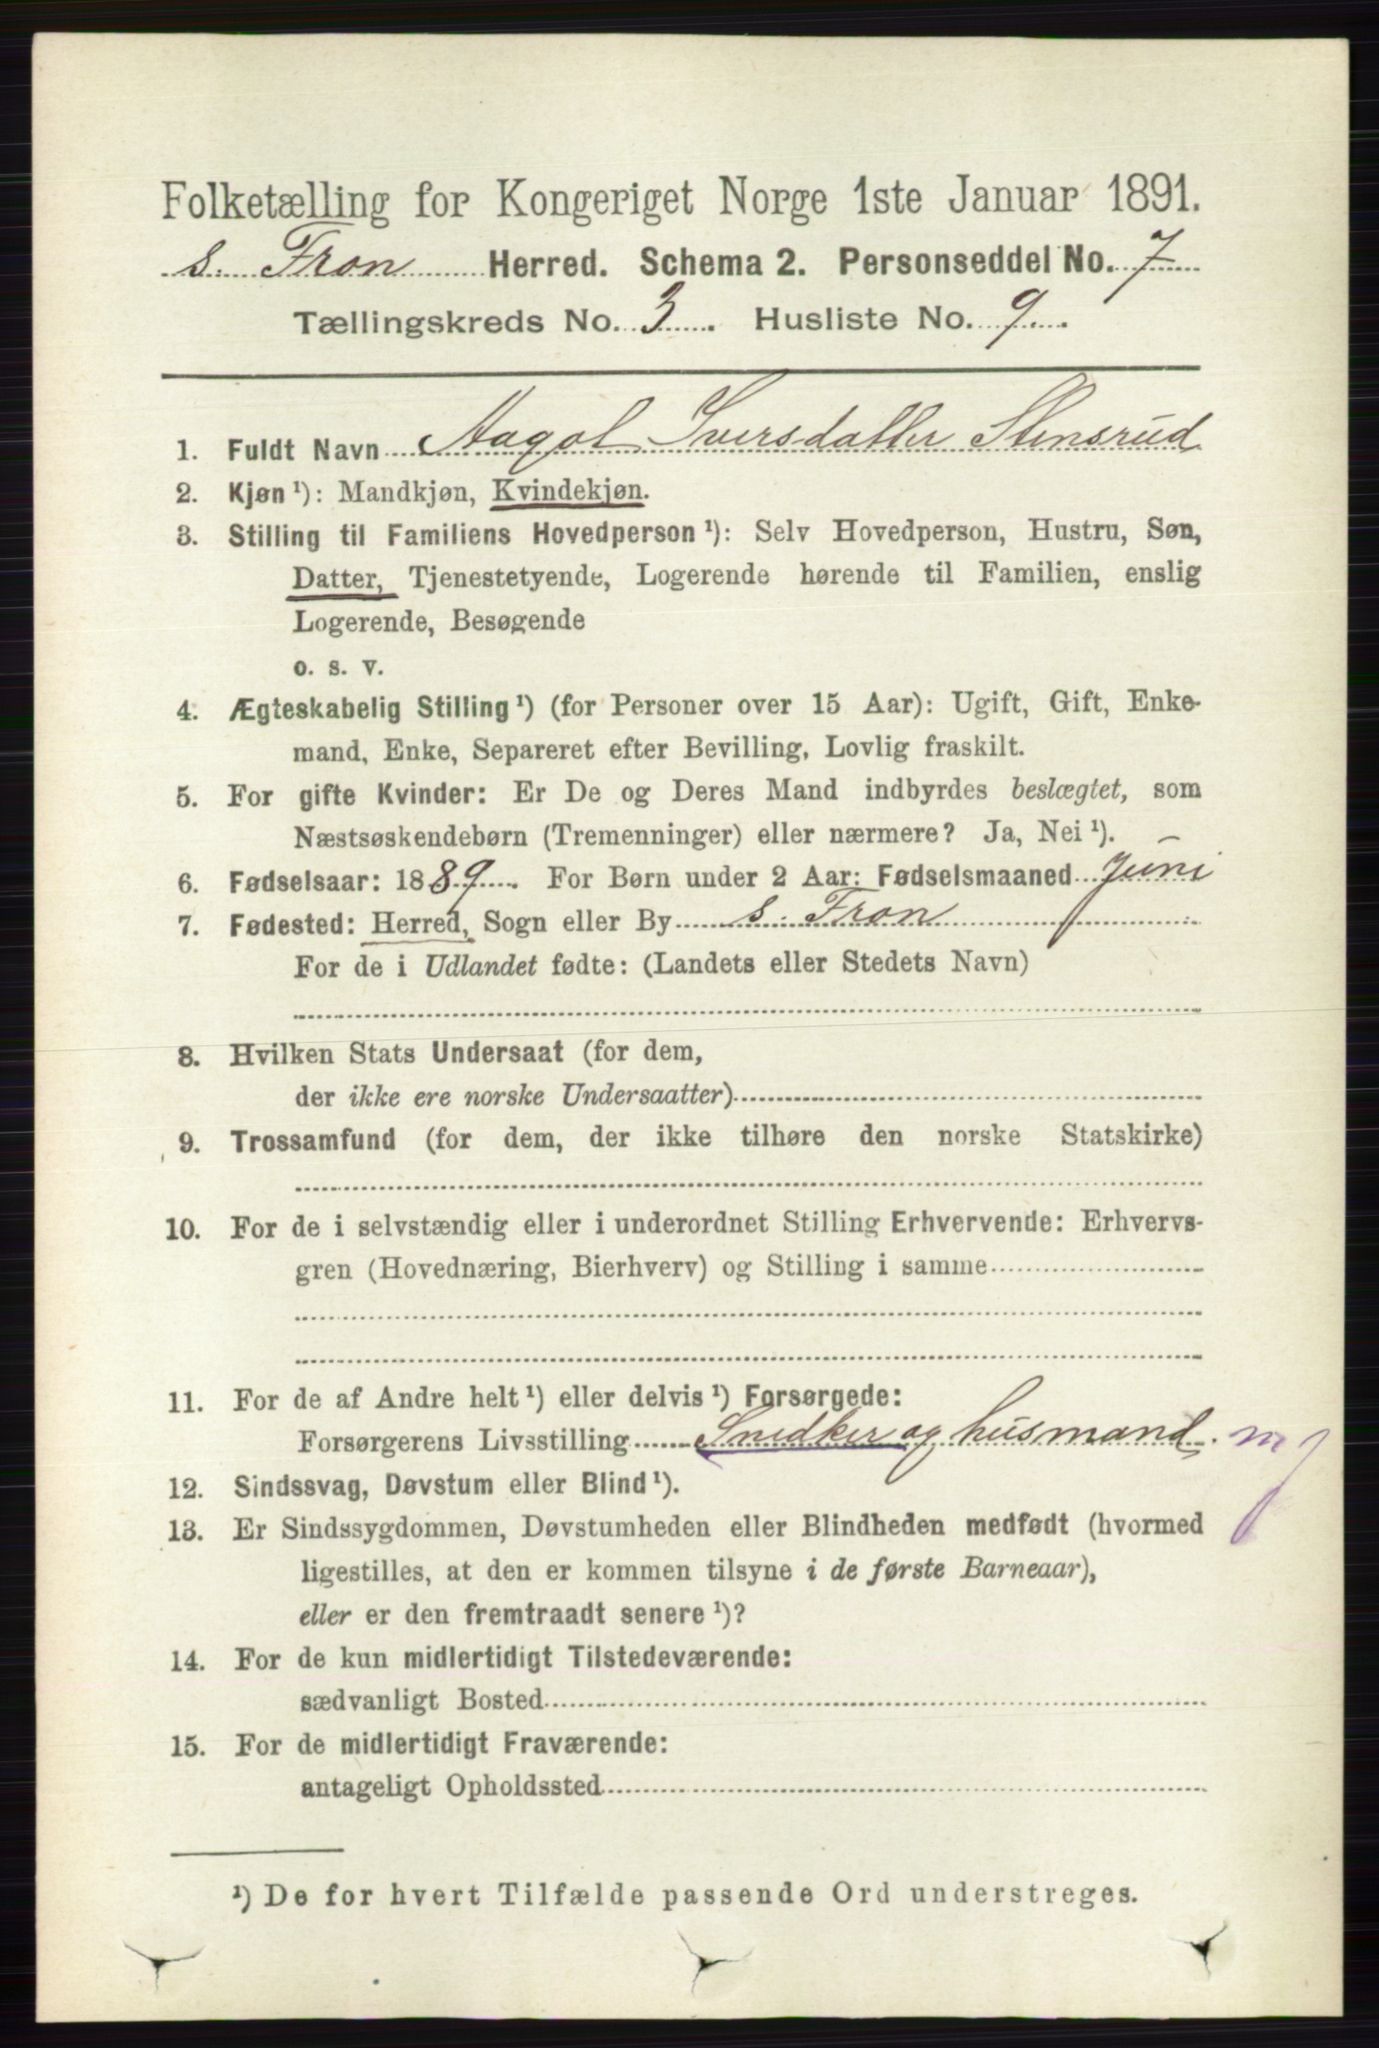 Folketælling for Kongeriget Norge 1ste Januar 1891.
s. Fron Herred. Schema 2. Personseddel No. 7
Tællingskreds No. 3. Husliste No. 9.
1. Fuldt Navn Aagot Iversdatter Stensrud
2. Kjøn ¹): Mandkjøn, Kvindekjøn.
3. Stilling til Familiens Hovedperson ¹): Selv Hovedperson, Hustru, Søn,
Datter, Tjenestetyende, Logerende hørende til Familien, enslig
Logerende, Besøgende
o. s. v.
4. Ægteskabelig Stilling ¹) (for Personer over 15 Aar): Ugift, Gift, Enke-
mand, Enke, Separeret efter Bevilling, Lovlig fraskilt.
5. For gifte Kvinder: Er De og Deres Mand indbyrdes beslægtet, som
Næstsøskendebørn (Tremenninger) eller nærmere? Ja, Nei ¹).
6. Fødselsaar: 1889. For Børn under 2 Aar: Fødselsmaaned Juni
7. Fødested: Herred, Sogn eller By s. Fron
For de i Udlandet fødte: (Landets eller Stedets Navn)
8. Hvilken Stats Undersaat (for dem,
der ikke ere norske Undersaatter)
9. Trossamfund (for dem, der ikke tilhøre den norske Statskirke)
10. For de i selvstændig eller i underordnet Stilling Erhvervende: Erhvervs-
gren (Hovednæring, Bierhverv) og Stilling i samme
11. For de af Andre helt ¹) eller delvis ¹) Forsørgede:
Forsørgerens Livsstilling Snedker og husmand.
12. Sindssvag, Døvstum eller Blind ¹).
13. Er Sindssygdommen, Døvstumheden eller Blindheden medfødt (hvormed
ligestilles, at den er kommen tilsyne i de første Barneaar),
eller er den fremtraadt senere ¹)?
14. For de kun midlertidigt Tilstedeværende:
sædvanligt Bosted
15. For de midlertidigt Fraværende:
antageligt Opholdssted
¹) De for hvert Tilfælde passende Ord understreges.